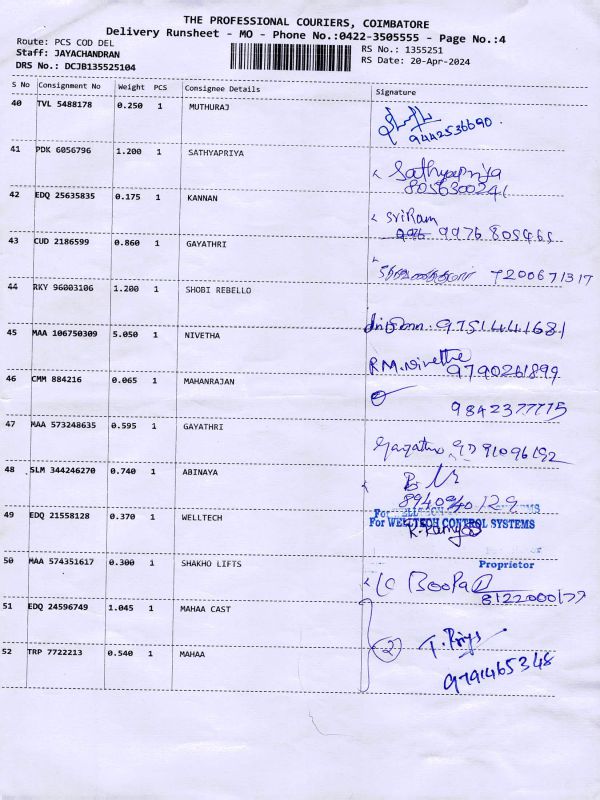 THE PROFESSIONAL COURIERS, COIMBATORE
Delivery Runsheet - MO - Phone No.:0422-3505555 - Page No.:4
Route: PCS COD DEL
Staff: JAYACHANDRAN
DRS No.: DCJB135525104
RS No.: 1355251
RS Date: 20-Apr-2024
S No Consignment No Weight PCS Consignee Details Signature
40 TVL 5488178 0.250 1 MUTHURAJ
9442536690
41 PDK 6056796 1.200 1 SATHYAPRIYA
Sathyapriya
8056300241
42 EDQ 25635835 0.175 1 KANNAN
SriRam
9976 805465
43 CUD 2186599 0.860 1 GAYATHRI
7200671317
44 RKY 96003106 1.200 1 SHOBI REBELLO
9751441681
45 MAA 106750309 5.050 1 NIVETHA
R.M.Nivetha
9790261899
46 CMM 884216 0.065 1 MAHANRAJAN
9842377775
47 MAA 573248635 0.595 1 GAYATHRI
Gayathri 9791096192
48 SLM 344246270 0.740 1 ABINAYA
8940940129
49 EDQ 21558128 0.370 1 WELLTECH
For WELLTECH CONTROL SYSTEMS
Proprietor
50 MAA 574351617 0.300 1 SHAKHO LIFTS
8122000177
51 EDQ 24596749 1.045 1 MAHAA CAST
52 TRP 7722213 0.540 1 MAHAA
2 T. Priya
9791465348